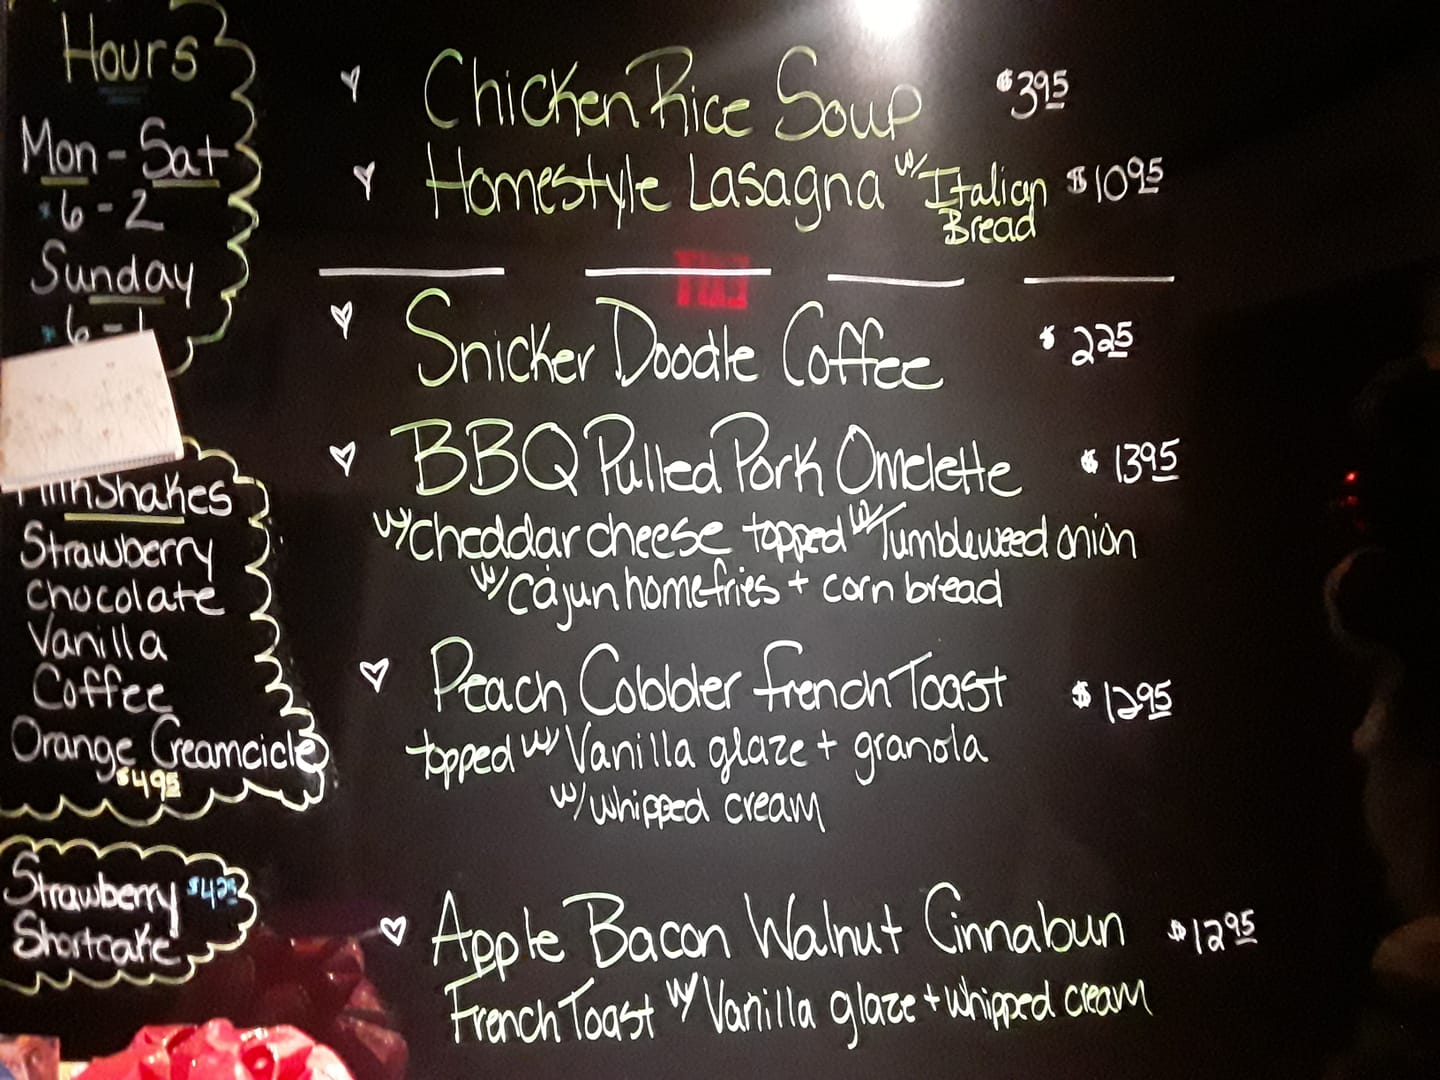 Hours
Mon - Sat
6 - 2
Sunday
6 - 1
Milkshakes
Strawberry
Chocolate
Vanilla
Coffee
Orange Creamcicle
$4.95
Strawberry $4.25
Shortcake
Chicken Rice Soup $3.95
Homestyle Lasagna w/ Italian Bread $10.95
Snicker Doodle Coffee $2.25
BBQ Pulled Pork Omelette $13.95
w/ cheddar cheese topped w/ Tumbleweed onion
w/ cajun homefries + corn bread
Peach Cobbler French Toast $12.95
topped w/ Vanilla glaze + granola
w/ whipped cream
Apple Bacon Walnut Cinnabun $12.95
French Toast w/ Vanilla glaze + whipped cream